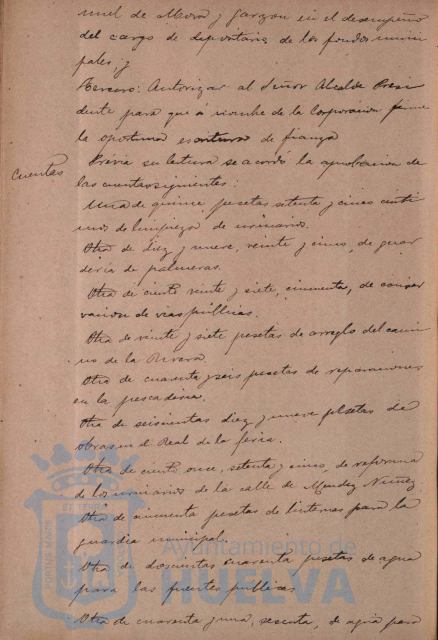 nuel de Mora y Garzon en el desempeño
del cargo de depositario de los fondos munici
pales, y
Tercero: Autorizar al Señor Alcalde Presi
dente para que a nombre de la Corporacion firme
la oportuna escritura de fianza
Cuentas
Prévia su lectura se acordó la aprobacion de
las cuentas siguientes:
Una de quince pesetas setenta y cinco centi
mos de limpieza de urinarios.
Otra de diez y nueve, veinte y cinco, de guar
deria de palmeras.
Otra de ciento veinte y siete, cincuenta, de conser
vacion de vias publicas.
Otra de veinte y siete pesetas de arreglo del cami
no de la Rivera.
Otra de cuarenta y seis pesetas de reparaciones
en la pescaderia.
Otra de seiscientas diez y nueve pesetas de
obras en el Real de la feria.
Otra de ciento once, setenta y cinco, de reforma
de los urinarios de la calle de Mendez Nuñez.
Otra de cincuenta pesetas de linternas para la
guardia municipal.
Otra de doscientas cuarenta pesetas de agua
para las fuentes publicas
Otra de cuarenta y una, sesenta, de agua para
Ayuntamiento de
HUELVA